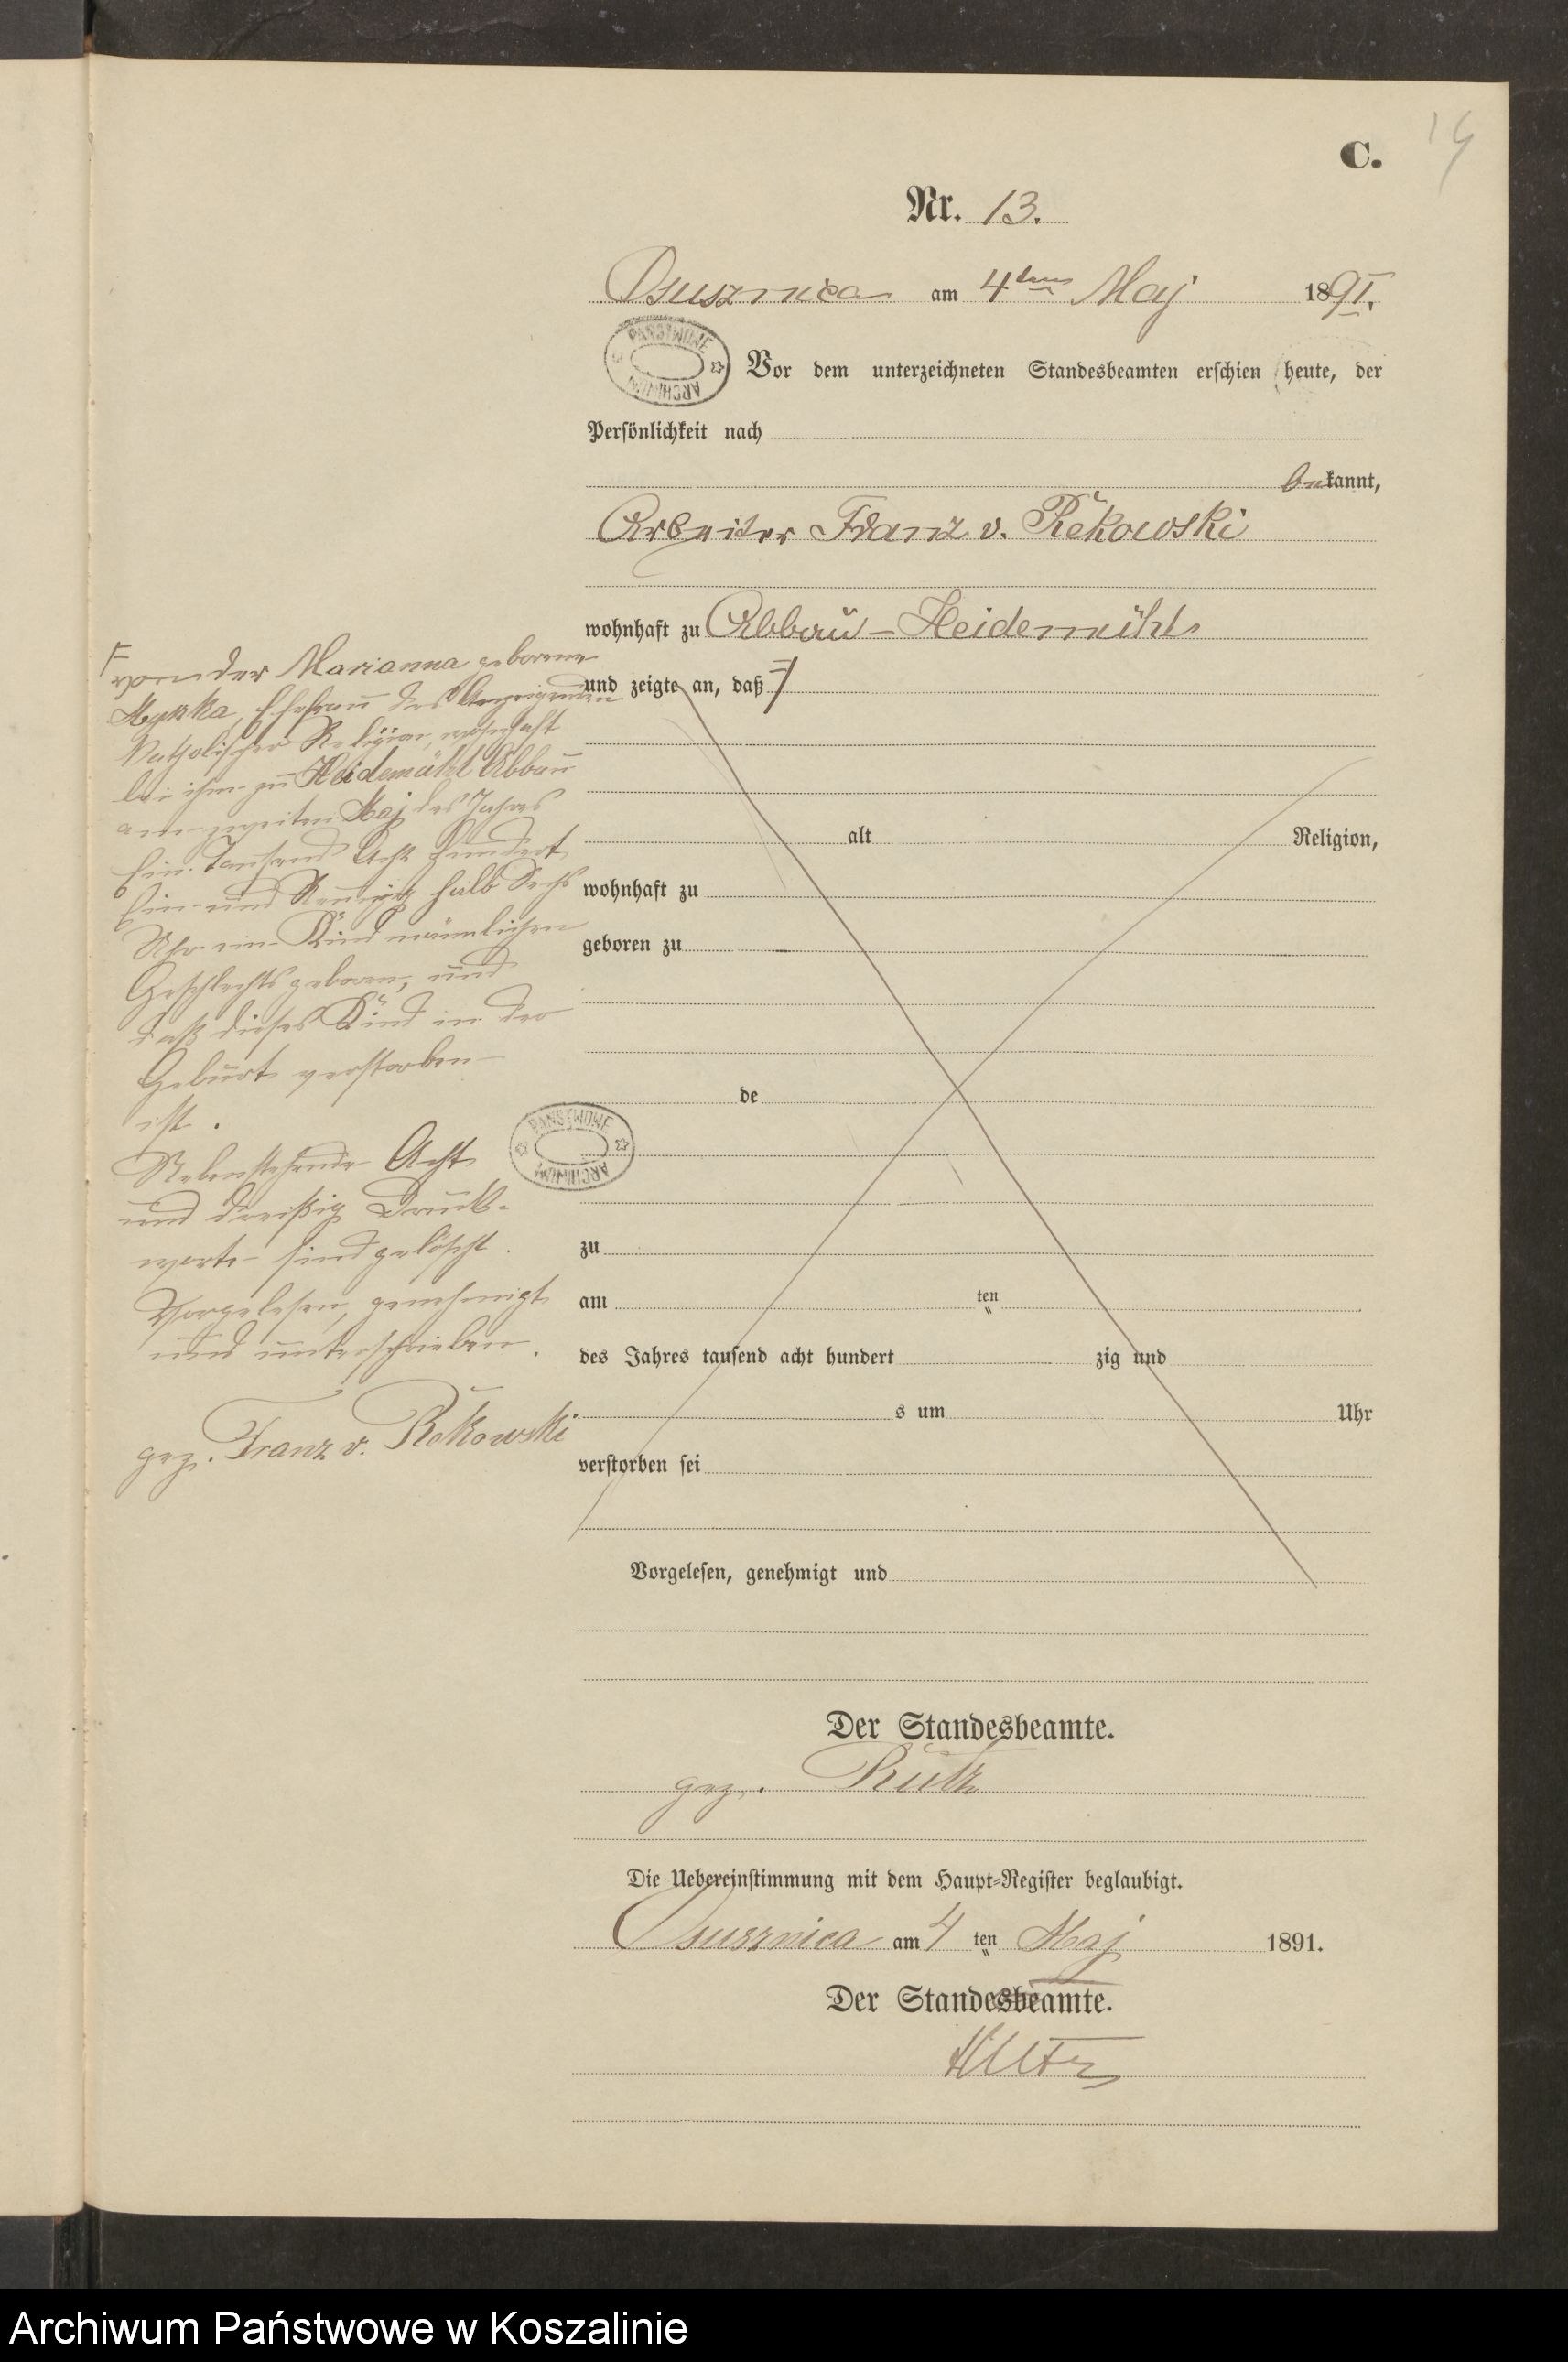 14
C.
Nr. 13.
Osusznica am 4ten Maj 1891.
PAŃSTWOWE ARCHIWUM
Vor dem unterzeichneten Standesbeamten erschien heute, der
Persönlichkeit nach
bekannt,
Arbeiter Franz v. Rekowski
wohnhaft zu Abbau-Heidemühl
und zeigte an, daß
alt Religion,
wohnhaft zu
geboren zu
de
zu
am ten
des Jahres tausend acht hundert zig und
s um Uhr
verstorben sei
Vorgelesen, genehmigt und
von der Marianna geborene
Myszka, Ehefrau des Anzeigenden
katholischer Religion, wohnhaft
bei ihm zu Heidemühl Abbau
am zweiten Maj des Jahres
Ein Tausend Acht hundert
Ein und Neunzig halb Sechs
Uhr ein Kind männlichen
Geschlechts geboren, und
daß dieses Kind in der
Geburt verstorben
ist.
Nebenstehende Acht
und dreißig Druck-
worte sind gelöscht.
Vorgelesen, genehmigt
und unterschrieben.
gez. Franz v. Rekowski
PAŃSTWOWE ARCHIWUM
Der Standesbeamte.
gez. Kutz
Die Uebereinstimmung mit dem Haupt-Register beglaubigt.
Osusznica am 4 ten Maj 1891.
Der Standesbeamte.
Kutz
Archiwum Państwowe w Koszalinie